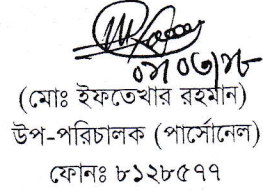 (মোঃ ইফতেখার রহমান)
উপ-পরিচালক (পার্সোনেল)
ফোনঃ ৮১২৮৫৭৭